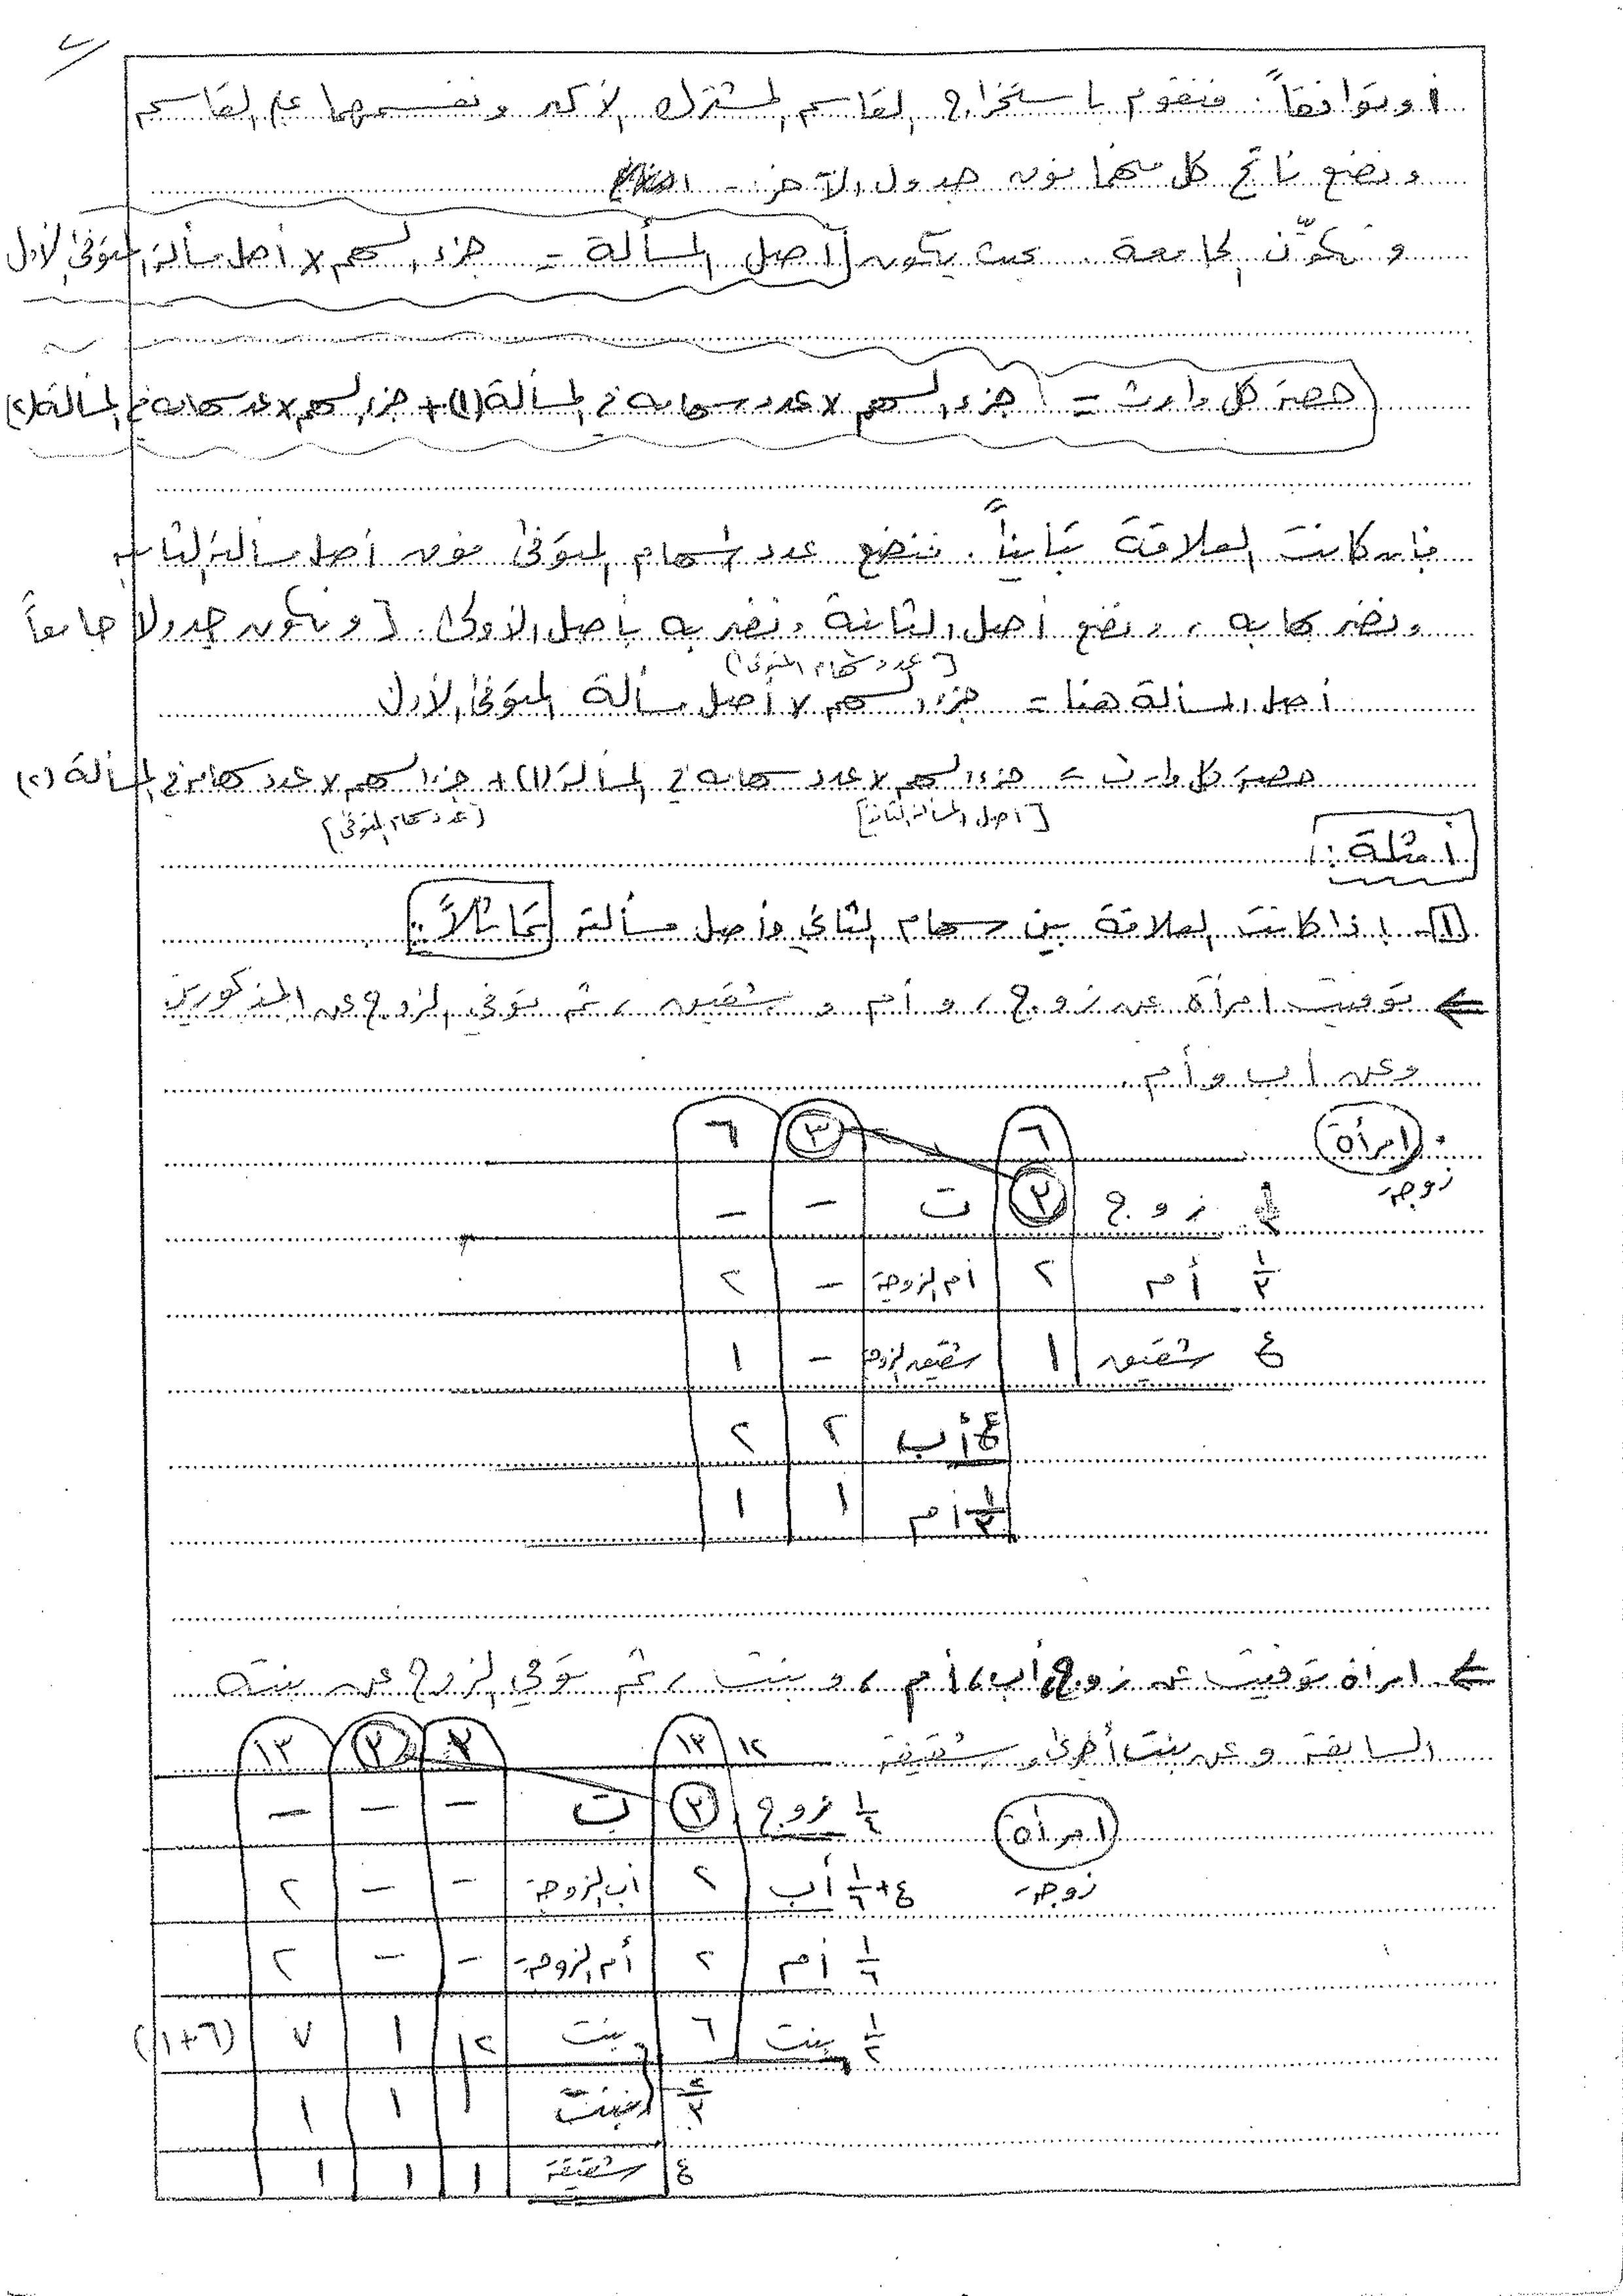 أو توافقاً: فنقوم باستخراج القاسم المشترك الأكبر ونقسمهما على القاسم
ونضع ناتج كل منهما فوق جدول الآخر -
ونكوّن الجامعة. بحيث يكون [أصل المسألة = جزء السهم × أصل مسألة المتوفى الأول
حصة كل وارث = جزء السهم × عدد سهامه في المسألة (١) + جزء السهم × عدد سهامه في المسألة (٢)
فإن كانت العلاقة تبايناً. فنضع عدد أسهام المتوفى فوق أصل مسألة الثاني
ونضربها به، ونضع أصل الثانية ونضربه بأصل الأولى. [ونكون جدولا جامعاً
[عدد سهام المتوفى]
أصل المسألة هنا = جزء السهم × أصل مسألة المتوفى الأول
حصة كل وارث = جزء السهم × عدد سهامه في المسألة (١) + جزء السهم × عدد سهامه في المسألة (٢)
[أصل المسألة الثانية] [عدد سهام المتوفى]
أمثلة:
١- إذا كانت العلاقة بين سهام الثاني وأصل مسألته تماثلاً:
← توفيت امرأة عن زوج، وأم وشقيق، ثم توفي الزوج عن المذكورين
وعن أب وأم
امرأة ٦ ٣ ٦
زوجة
زوج ٣ ت - -
١/٣ أم ٢ أم الزوجة - ٢
ع شقيق ١ شقيق الزوجة - ١
ع أب ٢ ٢
١/٣ أم ١ ١
← امرأة توفيت عن زوج، أب، أم، وبنت، ثم توفي الزوج عن بنته
السابقة وعن بنت أخرى وشقيقة ١٢ ١٣ ٣ ٣ ١٣
امرأة ١/٤ زوج ٣ ت - - -
زوجة ع + ١/٦ أب ٢ أب الزوجة - - ٢
١/٦ أم ٢ أم الزوجة - - ٢
١/٢ بنت ٦ بنت ٢ ١ ٧ (٦+١)
٢/٣ بنت ١ ١
ع شقيقة ١ ١ ١